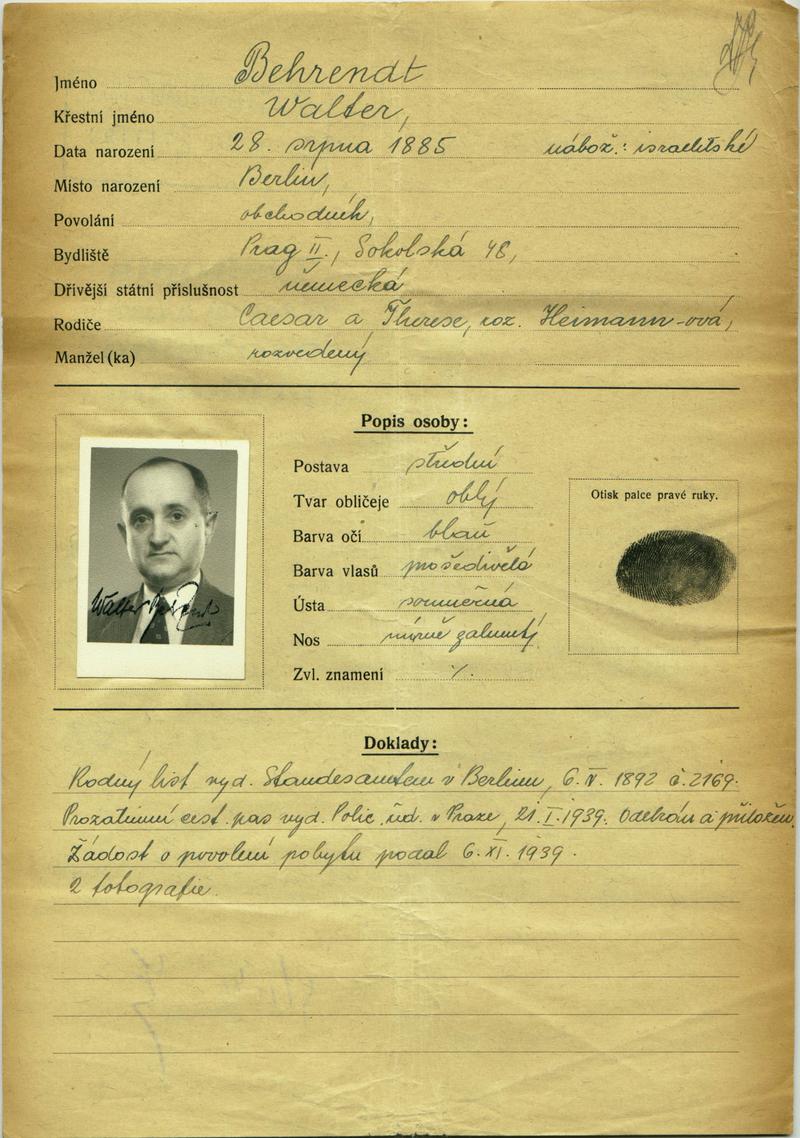 Jméno Behrendt
Křestní jméno Walter,
Data narození 28. srpna 1885 nábož.: israelitské
Místo narození Berlin,
Povolání obchodník,
Bydliště Prag II., Sokolská 48,
Dřívější státní příslušnost německá
Rodiče Caesar a Therese, roz. Heimann-ová,
Manžel (ka) rozvedený
Popis osoby:
Postava střední
Tvar obličeje oblý
Barva očí blau
Barva vlasů prošedivělá
Ústa souměrná
Nos mírně zahnutý
Zvl. znamení ./.
Otisk palce pravé ruky.
Walter Behrendt
Doklady:
Rodný list vyd. Standesamtem v Berlinu, 6. V. 1892 č. 2169.
Prozatimní cest. pas vyd. Polic. úd. v Praze, 21. I. 1939. Odebrán a přiložen.
Žádost o povolení pobytu podal 6. XI. 1939.
2 fotografie.